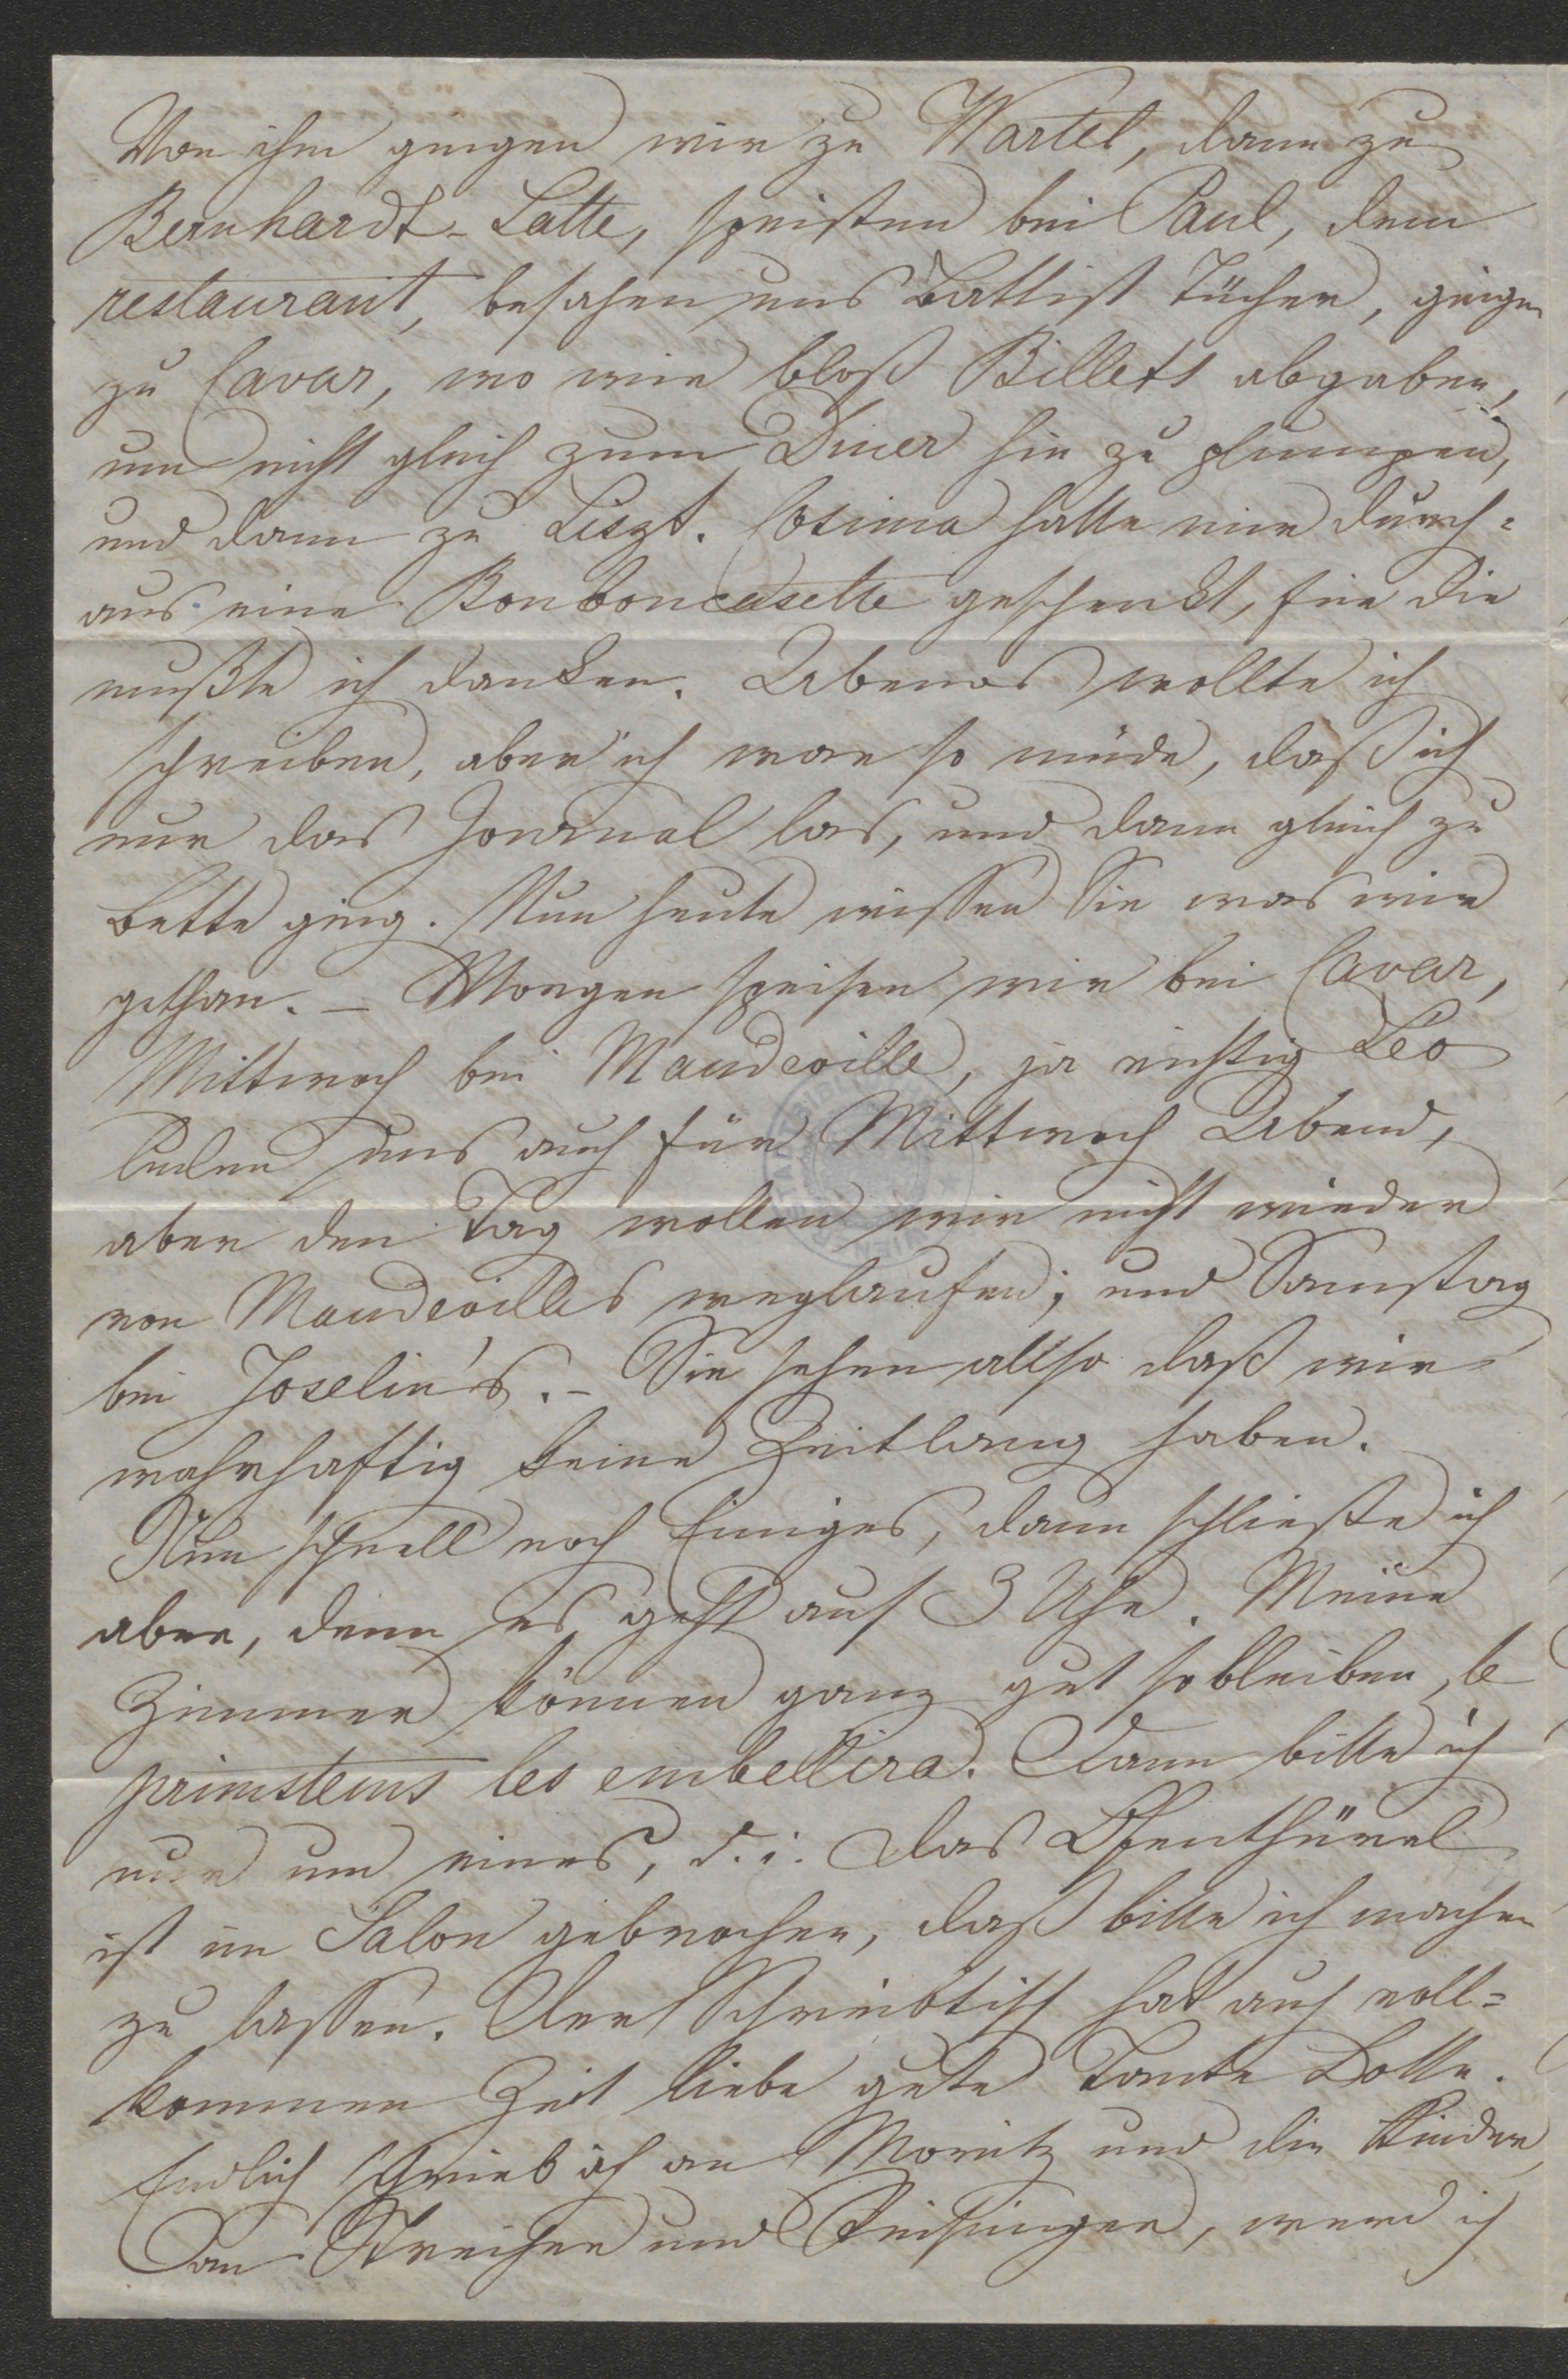 Von ihm gingen wir zu Wartel, dann zu
Bernhardt-Latte, speisten bei Paul, dem
restaurant, besahen uns Battist Tücher, gingen
zu Cavar, wo wir bloß Billetts abgaben,
um nicht gleich zum Diner hin zu plumpen,
und dann zu Liszt. Cosima hatte mir durch=
aus eine Bonboncasette geschenkt, für die
mußte ich danken. Abends wollte ich
schreiben, aber ich war so müde, daß ich
nur das Journal las, und dann gleich zu
Bette ging. Nun heute wissen Sie was wir
gethan. – Morgen speisen wir bei Cavar,
Mittwoch bei Mandeville, ja richtig Leo
luden uns auch für Mittwoch Abend,
aber den Tag wollen wir nicht wieder
von Mandevilles weglaufen; und Samstag
bei Joselin's. – Sie sehen allso daß wir
wahrhaftig keine Zeitlang haben.
Nun schnell noch Einiges, dann schließe ich
aber, denn es geht auf 3 Uhr. Meine
Zimmer können ganz gut so bleiben, le
printems les embellira. Dann bitte ich
nur um eines, d. i. das Ofenthürel
ist im Salon gebrochen, daß bitte ich machen
zu lassen. Der Schreibtisch hat auch voll=
kommen Zeit liebe gute Tante Lotte.
Endlich schrieb ich an Moritz und die Kinder,
An Streicher und Fischinger, werd ich